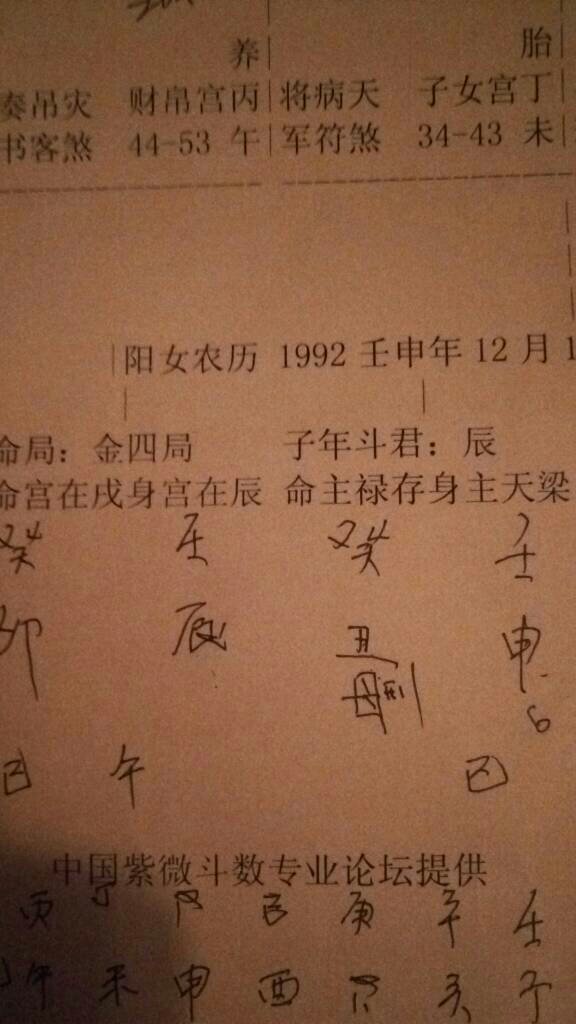 养 胎
奏吊灾 财帛宫丙 将病天 子女宫丁
书客煞 44-53 午 军符煞 34-43 未
阳女农历 1992 壬申年 12 月 1
命局：金四局 子年斗君：辰
命宫在戌身宫在辰 命主禄存身主天梁
癸 壬 癸 壬
卯 辰 丑 申
6
巳 午 巳
中国紫微斗数专业论坛提供
丙 丁 戊 己 庚 辛 壬
午 未 申 酉 亥 子